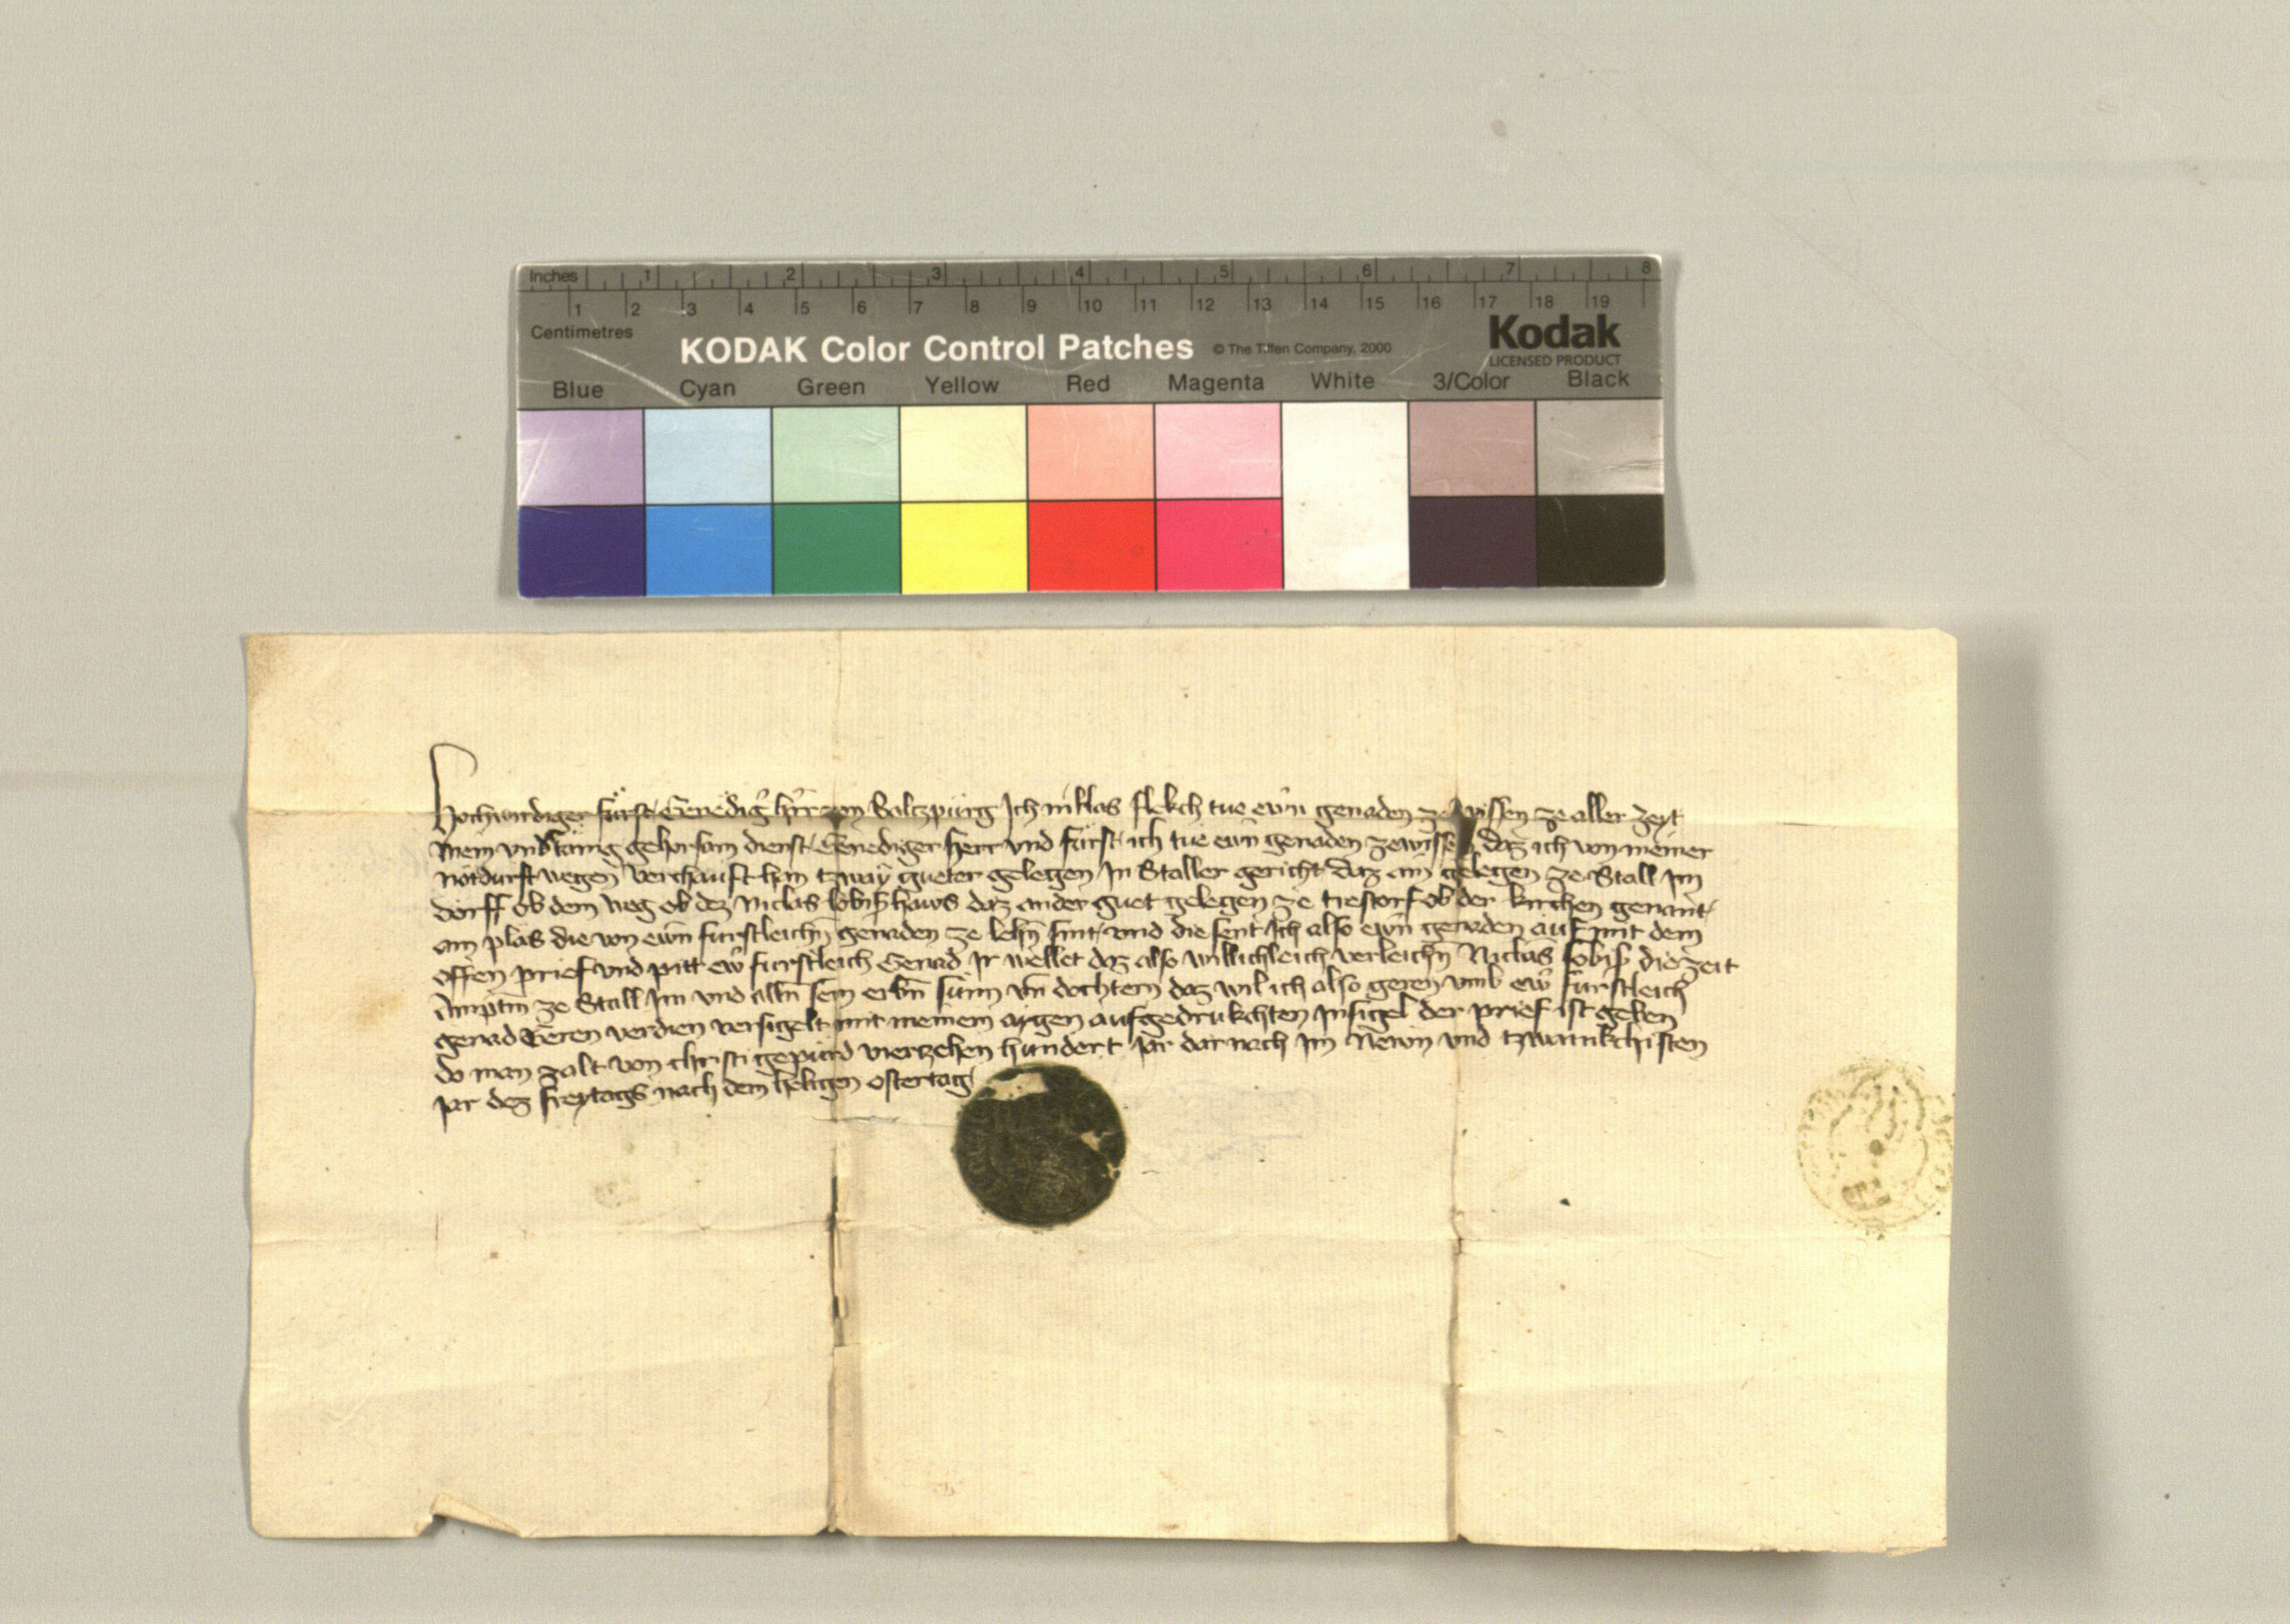 Inches 1 2 3 4 5 6 7 8
1 2 3 4 5 6 7 8 9 10 11 12 13 14 15 16 17 18 19
Centimetres
KODAK Color Control Patches © The Tiffen Company, 2000
Kodak
LICENSED PRODUCT
Blue Cyan Green Yellow Red Magenta White 3/Color Black
Hochwirdiger fürst Genedig' h'r von Saltzpurg Ich niklas flekch tue ewn genaden ze wissen ze aller zeyt
mein vndtänig gehorsam dienst Genediger herr vnd fürst ich tue ewn genaden ze wissen daz ich von meiner
notdurft wegen verchauft han tzway gueter gelegen In Staller gericht daz ain gelegen ze Stall Im
dorff ob dem weg ob dez Niclas haws daz ander guet gelegen ze trestorf ob der kirchen genant
am plas die von ewn furstleichn genaden ze lehn sint vnd die sent Ich also ewn genaden auf mit dem
offen prief vnd pitt ew furstleich Genad Ir wellet daz also willichleich verleichn Niclas die zeit
Amptm ze Stall Im vnd alln sein erbn sünn vn dochtern daz wil ich also geren vmb ew fürstleich
genad verdien versigelt mit meinem aygen aufgedrukchten Insigel der prief ist geben
do man zalt von christi gepurd vierzehen hundert Jar dar nach Im Newn vnd tzwainkchisten
Jar dez freytags nach dem heligen ostertag